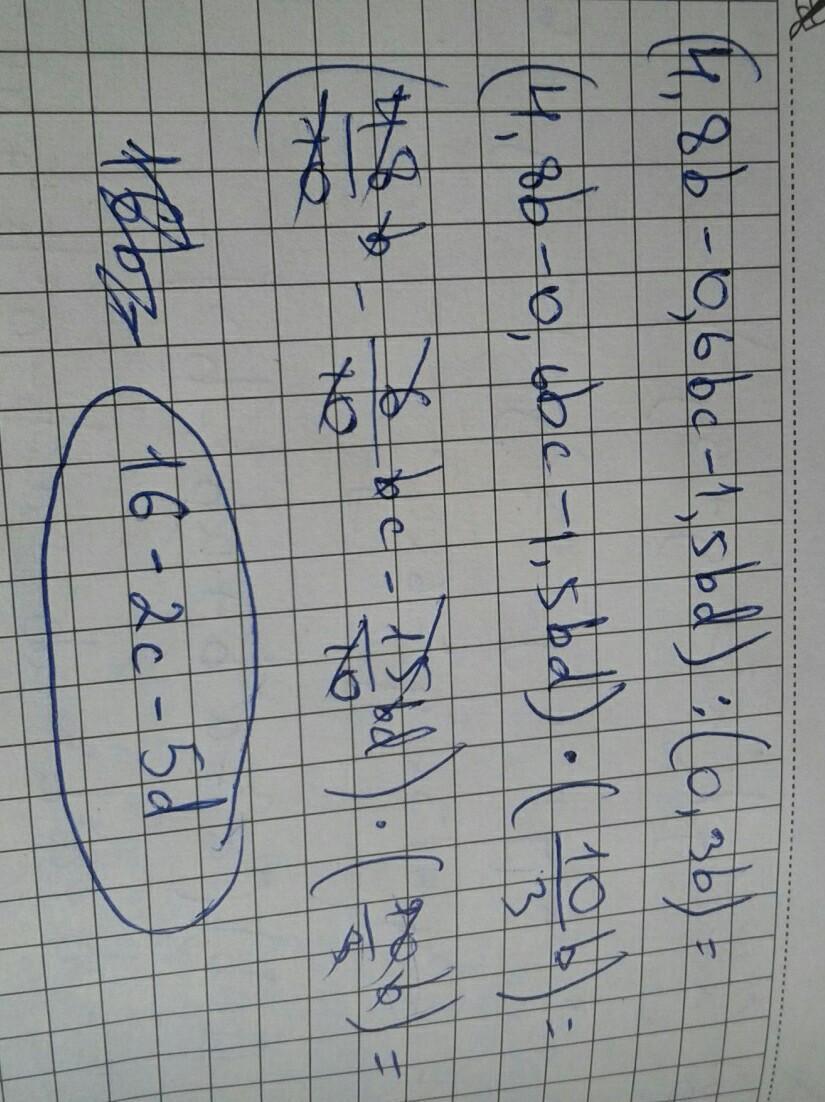 (4,8b - 0,6bc - 1,5bd) : (0,3b) =
(4,8b - 0,6bc - 1,5bd) · (10/3 b) =
(48/10 b - 6/10 bc - 15/10 bd) · (10/3 b) =
16 - 2c - 5d